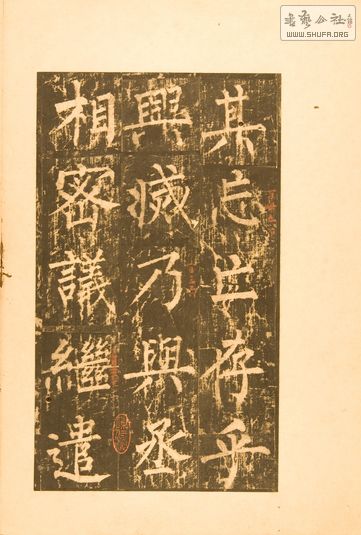 其忘亡存乎
興滅乃與丞
相密議繼遣
書藝公社
WWW.SHUFA.ORG